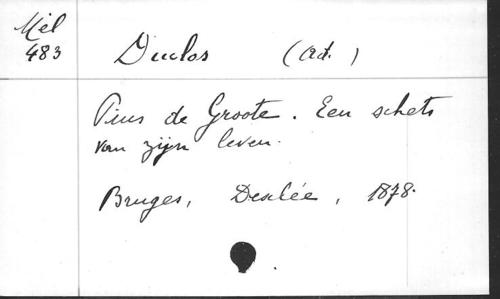 Mél
483
Duclos (Ad.)
Pius de Groote. Een schets
van zijn leven.
Bruges, Desclée, 1878.